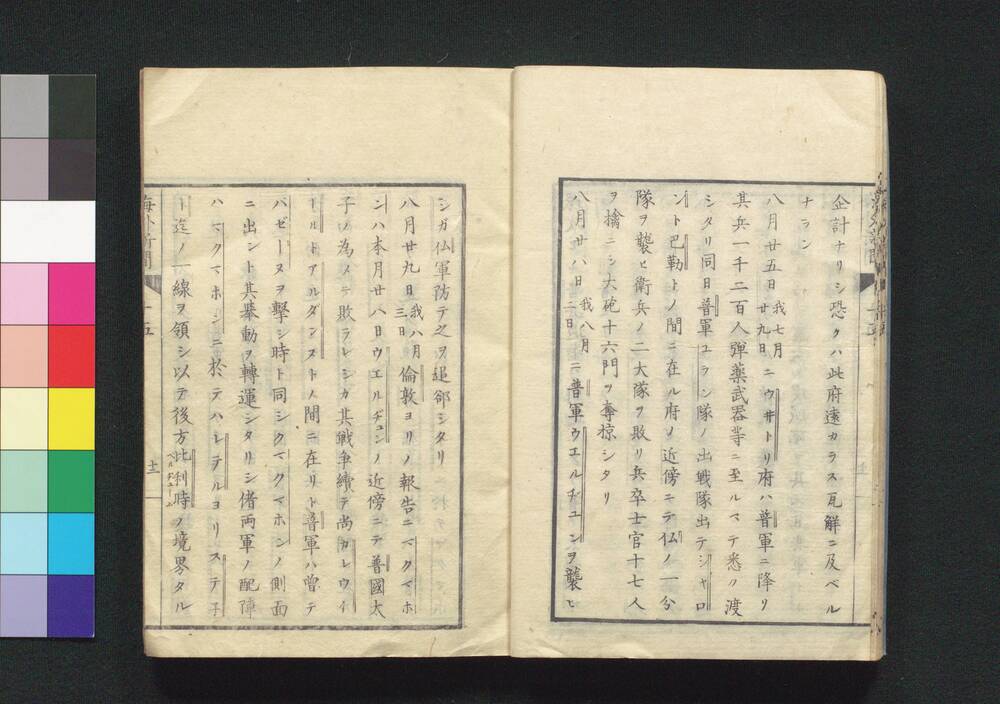 企計ナリシ恐クハ此府遠カラス瓦解ニ及ベル
ナラン
八月廿五日我七月廿九日ニウ井トリ府ハ普軍ニ降リ
其兵一千二百人弾薬武器等ニ至ルマテ悉ク渡
シタリ同日普軍ユラン隊ノ出戦隊出テシャロ
ント巴勒トノ間ニ在ル府ノ近傍ニテ仏ノ一分
隊ヲ襲ヒ衛兵ノ二大隊ヲ敗リ兵卒士官十七人
ヲ擒ニシ大砲十六門ヲ奪掠シタリ
八月廿八日我八月二日ニ普軍ウエルヂユンヲ襲ヒ
シガ仏軍防テ之ヲ退郤シタリ
八月廿九日我八月三日倫敦ヨリノ報告ニマクマホ
ンハ本月廿八日ウエルヂュンノ近傍ニテ普國太
子ノ為メニ敗ラレシカ其戦争續テ尚カレウイ
ールトアルダンヌトノ間ニ在リト普軍ハ曽テ
バゼーヌヲ撃シ時ト同シクマクマホンノ側面
ニ出ント其擧動ヲ轉運シタリシ偖両軍ノ配陣
ハマクマホンニ於テハレテルヨリステ子
ト迄ノ一線ヲ領シ以テ後方比利時ベルヂユームノ境界タル
海外新聞
十五
十一